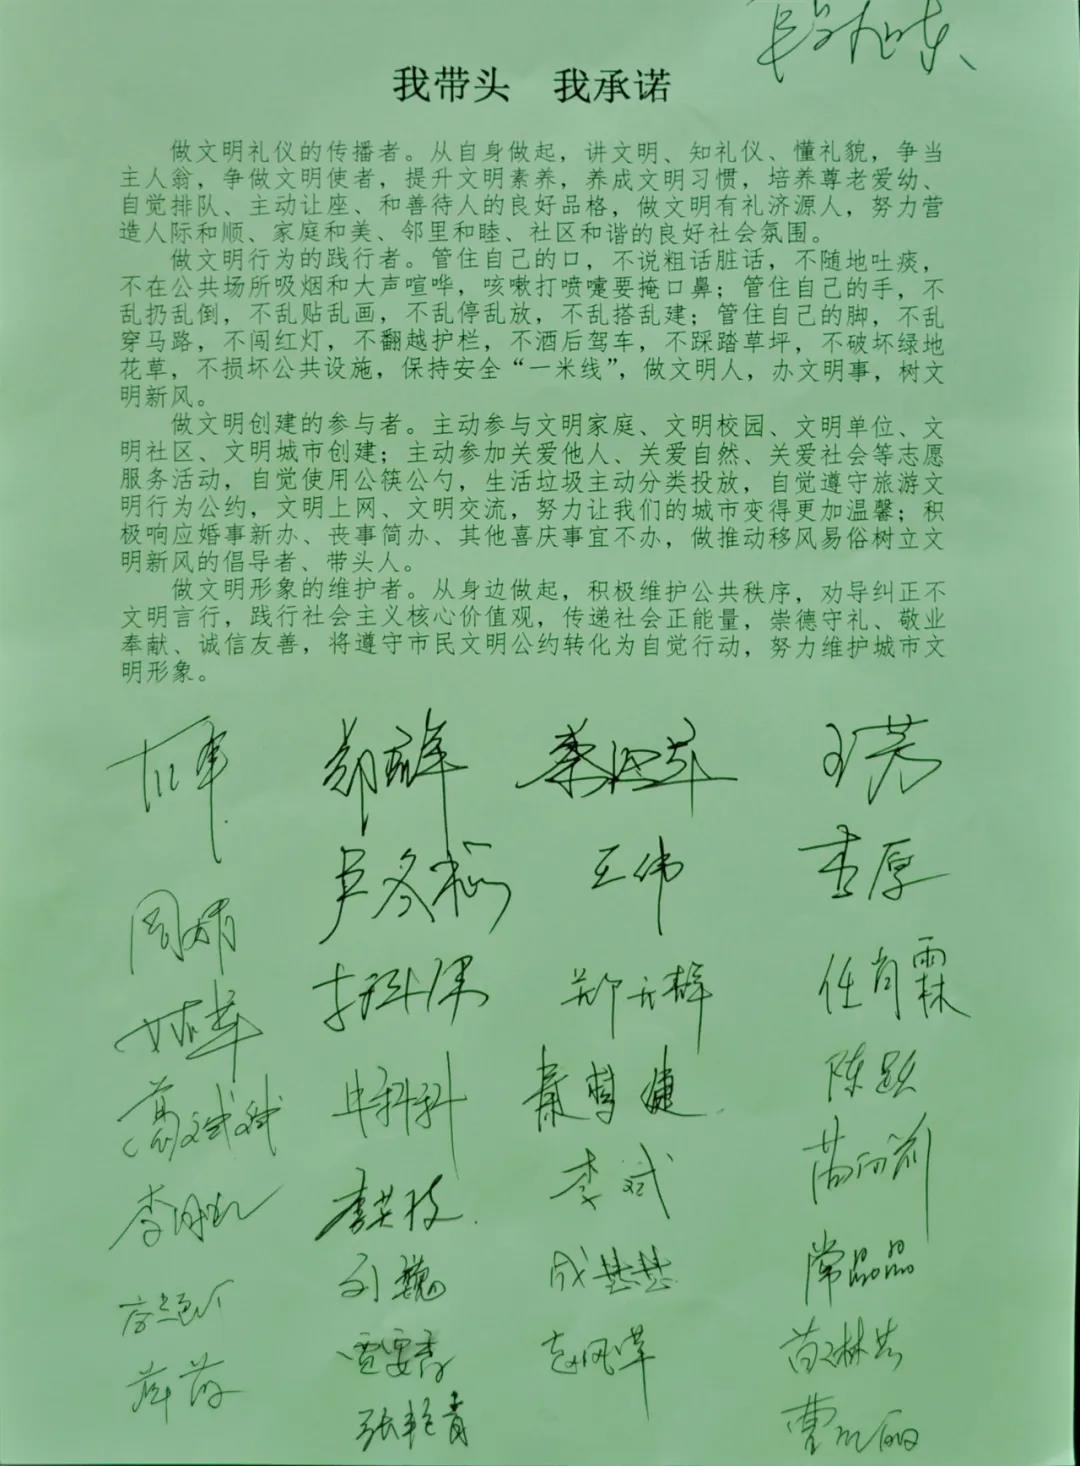 我带头 我承诺
做文明礼仪的传播者。从自身做起，讲文明、知礼仪、懂礼貌，争当
主人翁，争做文明使者，提升文明素养，养成文明习惯，培养尊老爱幼、
自觉排队、主动让座、和善待人的良好品格，做文明有礼济源人，努力营
造人际和顺、家庭和美、邻里和睦、社区和谐的良好社会氛围。
做文明行为的践行者。管住自己的口，不说粗话脏话，不随地吐痰，
不在公共场所吸烟和大声喧哗，咳嗽打喷嚏要掩口鼻；管住自己的手，不
乱扔乱倒，不乱贴乱画，不乱停乱放，不乱搭乱建；管住自己的脚，不乱
穿马路，不闯红灯，不翻越护栏，不酒后驾车，不踩踏草坪，不破坏绿地
花草，不损坏公共设施，保持安全“一米线”，做文明人，办文明事，树文
明新风。
做文明创建的参与者。主动参与文明家庭、文明校园、文明单位、文
明社区、文明城市创建；主动参加关爱他人、关爱自然、关爱社会等志愿
服务活动，自觉使用公筷公勺，生活垃圾主动分类投放，自觉遵守旅游文
明行为公约，文明上网、文明交流，努力让我们的城市变得更加温馨；积
极响应婚事新办、丧事简办、其他喜庆事宜不办，做推动移风易俗树立文
明新风的倡导者、带头人。
做文明形象的维护者。从身边做起，积极维护公共秩序，劝导纠正不
文明言行，践行社会主义核心价值观，传递社会正能量，崇德守礼、敬业
奉献、诚信友善，将遵守市民文明公约转化为自觉行动，努力维护城市文
明形象。
王芳
王伟
李厚
周婧
任肖霖
陈跃
申科科
李英枝
李斌
刘巍
成慧慧
常品品
张艳青